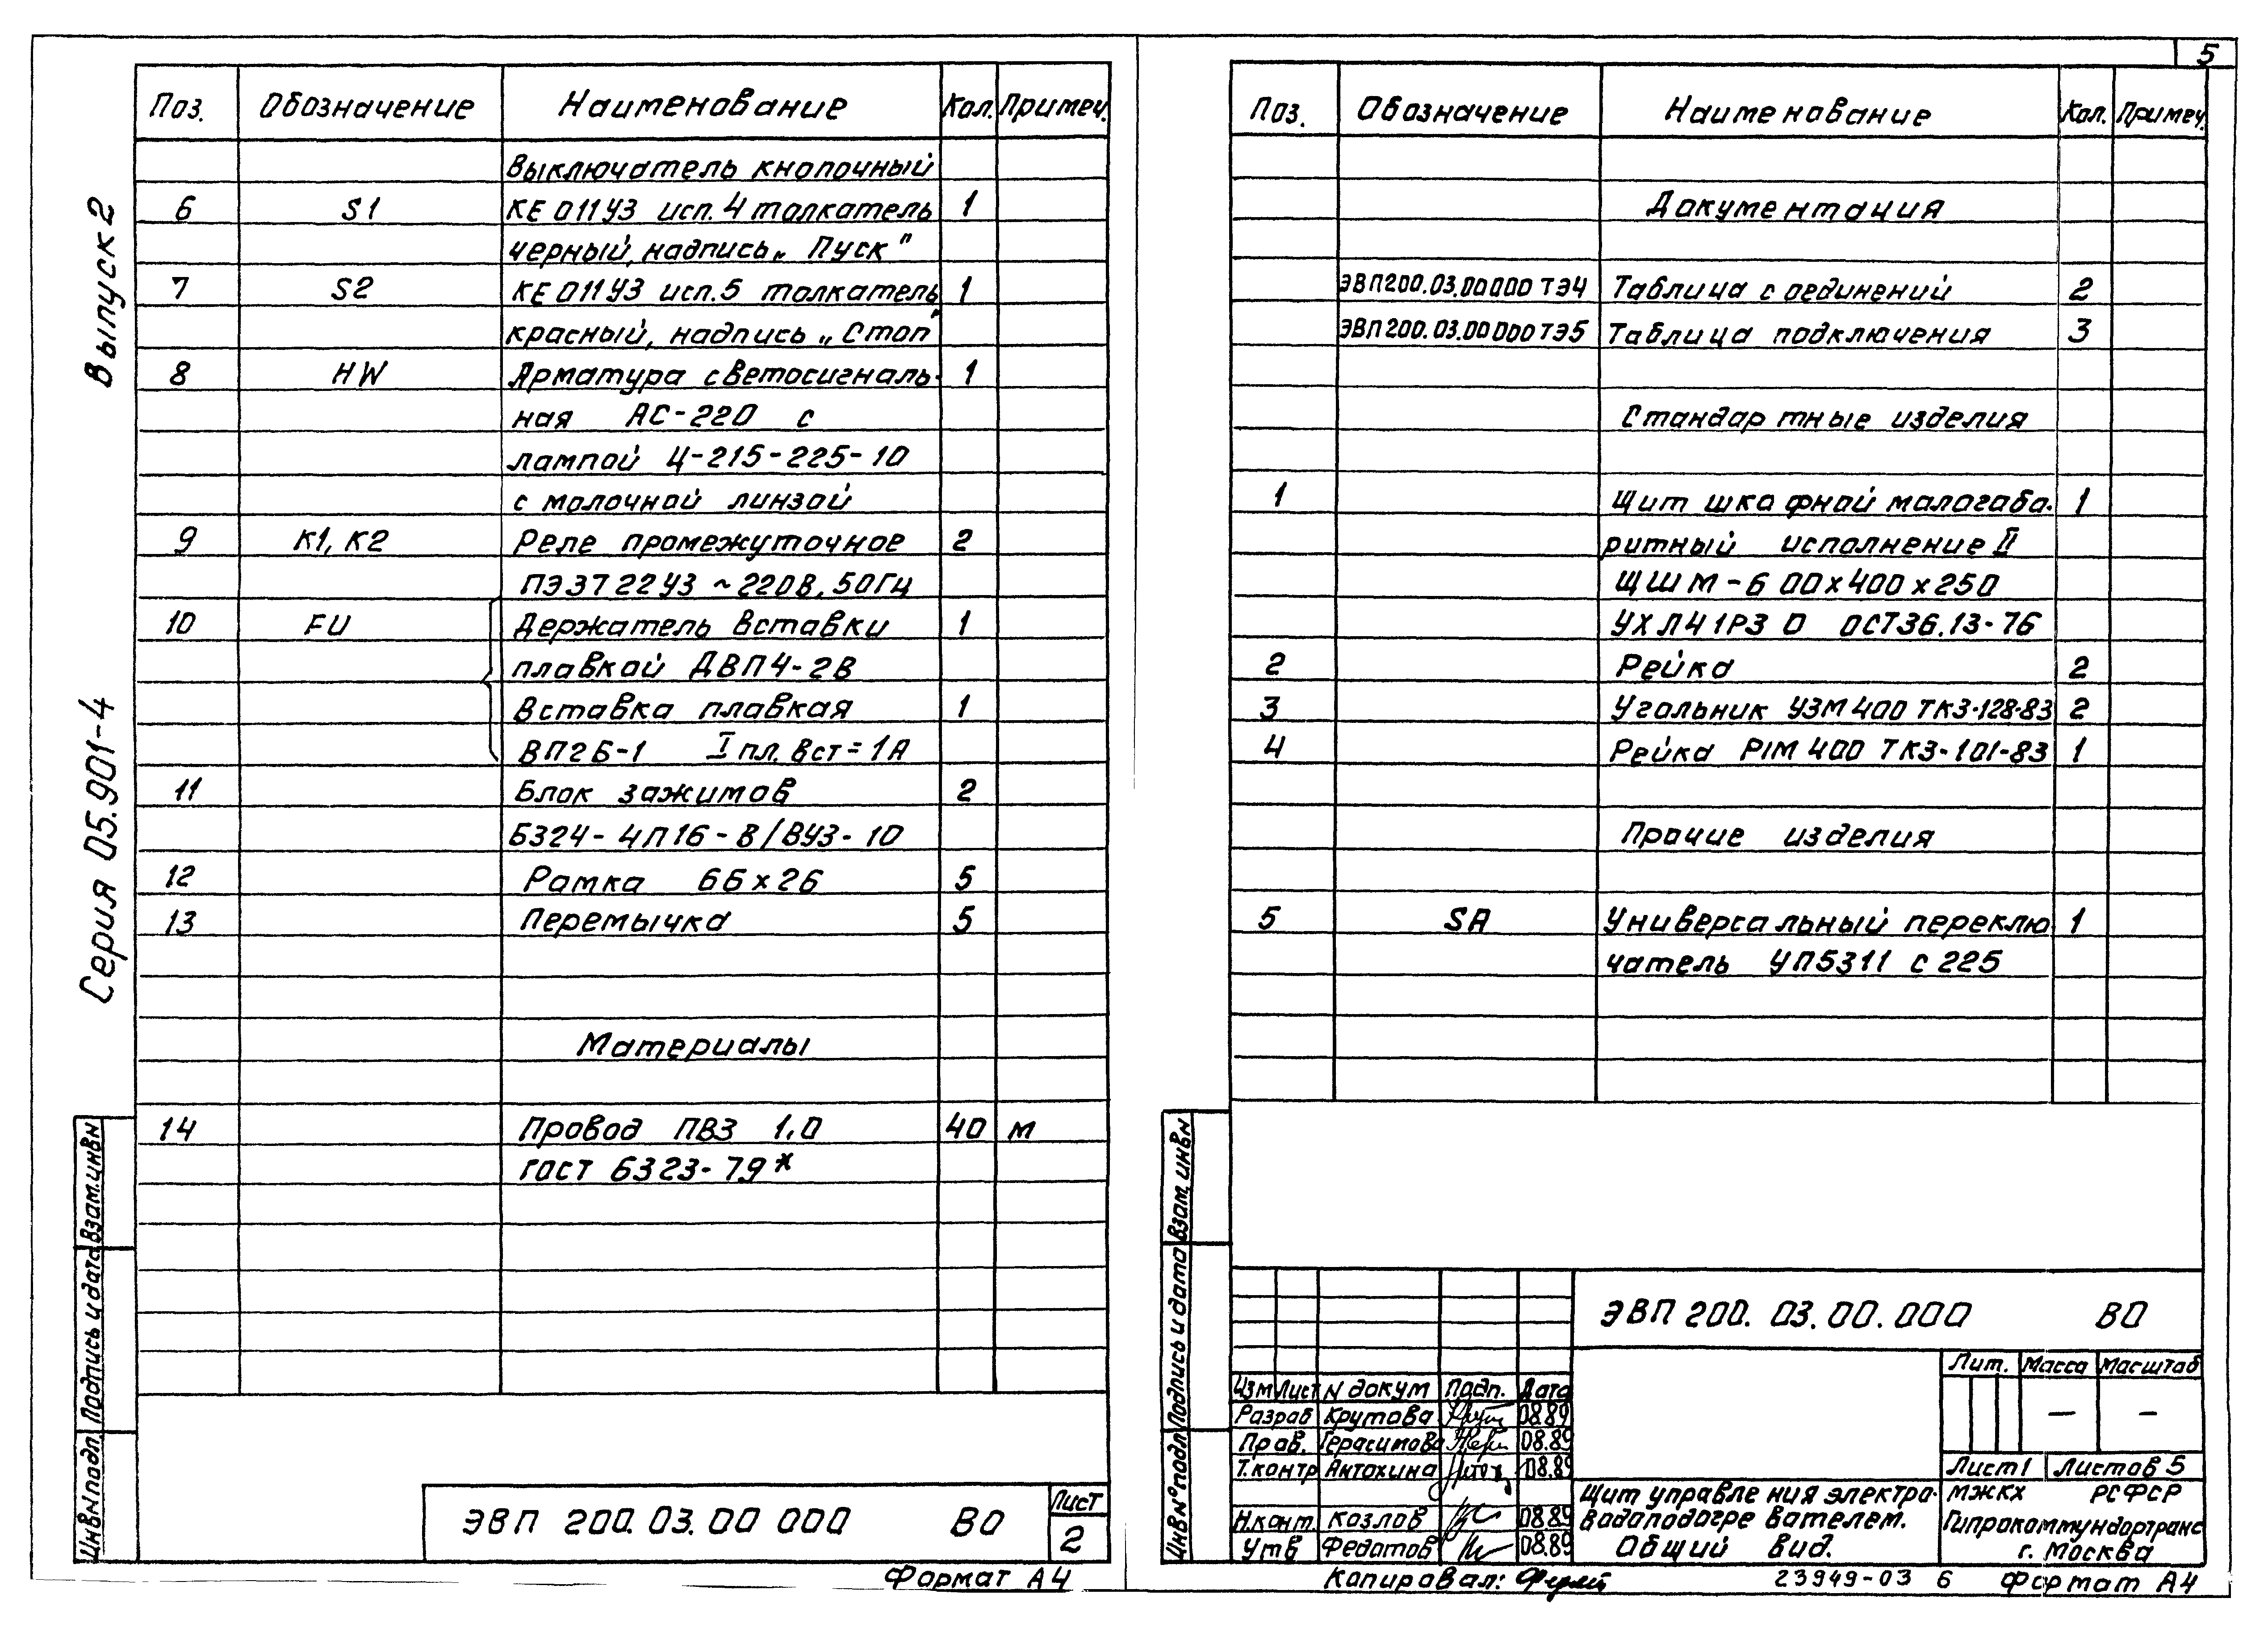 5
Выпуск 2
Серия 05.901-4
Поз. Обозначение Наименование Кол. Примеч.
Выключатель кнопочный
6 S1 КЕ 011У3 исп. 4 толкатель 1
черный, надпись „ Пуск "
7 S2 КЕ 011У3 исп. 5 толкатель 1
красный, надпись „ Стоп"
8 HW Арматура светосигналь- 1
ная АС-220 с
лампой Ц-215-225-10
с молочной линзой
9 К1, К2 Реле промежуточное 2
ПЭ37 22У3 ~220В, 50Гц
10 FU Держатель вставки 1
плавкой ДВП4-2В
Вставка плавкая 1
ВП2Б-1 I пл. вст = 1А
11 Блок зажимов 2
Б324- 4П16-В/ВУ3-10
12 Рамка 66х26 5
13 Перемычка 5
Материалы
14 Провод ПВ3 1,0 40 м
гост 6323-79*
Взам.инвN
Подпись и дата
ИнвNподл.
ЭВП 200.03.00 000 ВО
Лист
2
Формат А4
Поз. Обозначение Наименование Кол. Примеч.
Документация
ЭВП200.03.00000 ТЭ4 Таблица соединений 2
ЭВП200.03.00000ТЭ5 Таблица подключения 3
Стандартные изделия
1 Щит шкафной малогаба- 1
ритный исполнение II
ЩШМ-600х400х250
УХЛ41Р30 ОСТ36.13-76
2 Рейка 2
3 Угольник УЗМ400 ТК3-128-83 2
4 Рейка Р1М400 ТК3-101-83 1
Прочие изделия
5 SA Универсальный переклю 1
чатель УП5311 с225
Взам. инвN
Подпись и дата
Инв N° подл
ЭВП 200. 03. 00. 000 ВО
Лит. Масса Масштаб
— –
Изм Лист N докум Подп. Дата
Разраб Крутова 08.89
Пров. Герасимова 08.89
Т.контр Антохина 08.89
Н.конт. Козлов 08.89
Утв Федотов 08.89
Лист 1 Листов 5
Щит управления электро-
водоподогревателем.
Общий вид.
МЖКХ РСФСР
Гипрокоммундортранс
г. Москва
Копировал: 23949-03 6 Формат А4